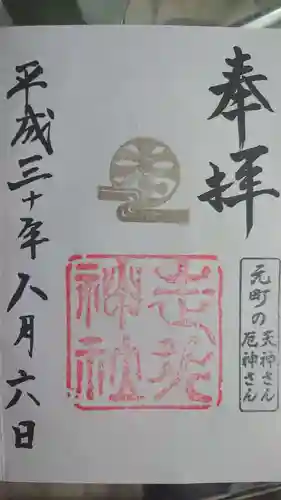 奉拝
元町の天神さん
厄神さん
走水
神社
平成三十年八月六日